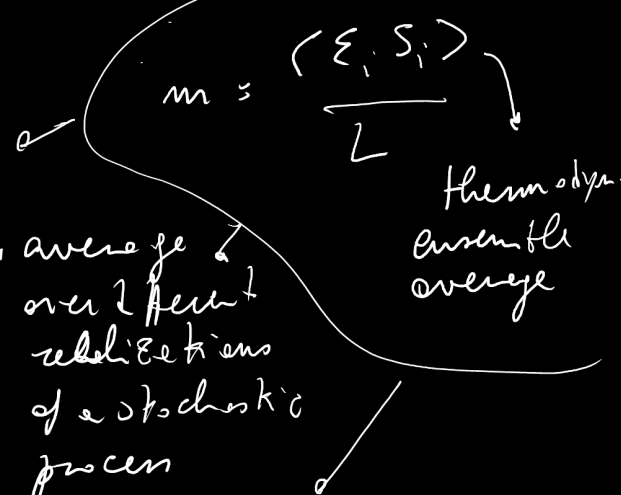 m = ⟨Σᵢ Sᵢ⟩
L
thermodyn
ensemble
average
average
over different
realizations
of a stochastic
process